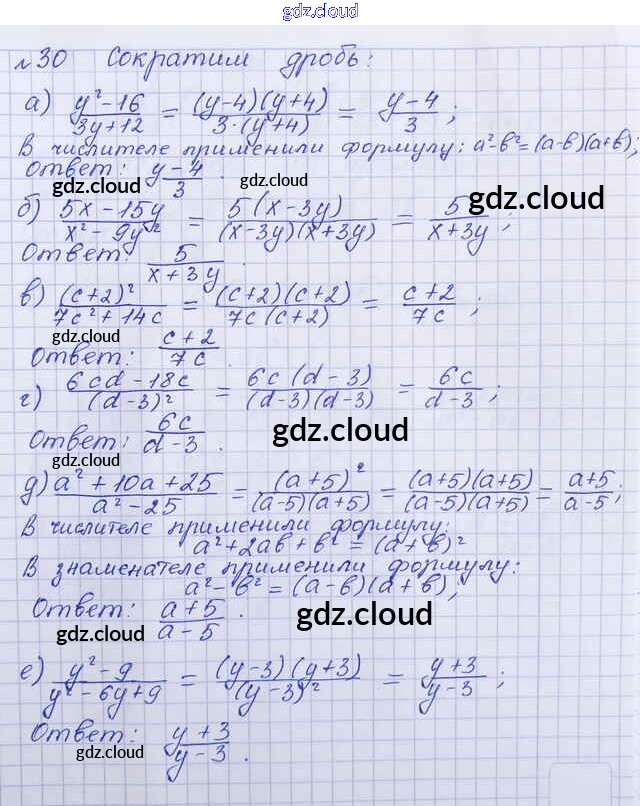 gdz.cloud
№30 Сократим дробь:
а) (y²-16)/(3y+12) = ((y-4)(y+4))/(3·(y+4)) = (y-4)/3;
В числителе применили формулу: a²-b²=(a-b)(a+b);
Ответ: (y-4)/3.
gdz.cloud gdz.cloud gdz.cloud
б) (5x-15y)/(x²-9y²) = (5(x-3y))/((x-3y)(x+3y)) = 5/(x+3y);
gdz.cloud
Ответ: 5/(x+3y).
в) (c+2)²/(7c²+14c) = ((c+2)(c+2))/(7c(c+2)) = (c+2)/(7c);
gdz.cloud
Ответ: (c+2)/(7c).
gdz.cloud
г) (6cd-18c)/(d-3)² = (6c(d-3))/((d-3)(d-3)) = 6c/(d-3);
Ответ: 6c/(d-3).
gdz.cloud gdz.cloud
д) (a²+10a+25)/(a²-25) = (a+5)²/((a-5)(a+5)) = ((a+5)(a+5))/((a-5)(a+5)) = (a+5)/(a-5);
В числителе применили формулу:
a²+2ab+b²=(a+b)²
В знаменателе применили формулу:
a²-b²=(a-b)(a+b);
Ответ: (a+5)/(a-5).
gdz.cloud gdz.cloud
е) (y²-9)/(y²-6y+9) = ((y-3)(y+3))/(y-3)² = (y+3)/(y-3);
Ответ: (y+3)/(y-3).
gdz.cloud